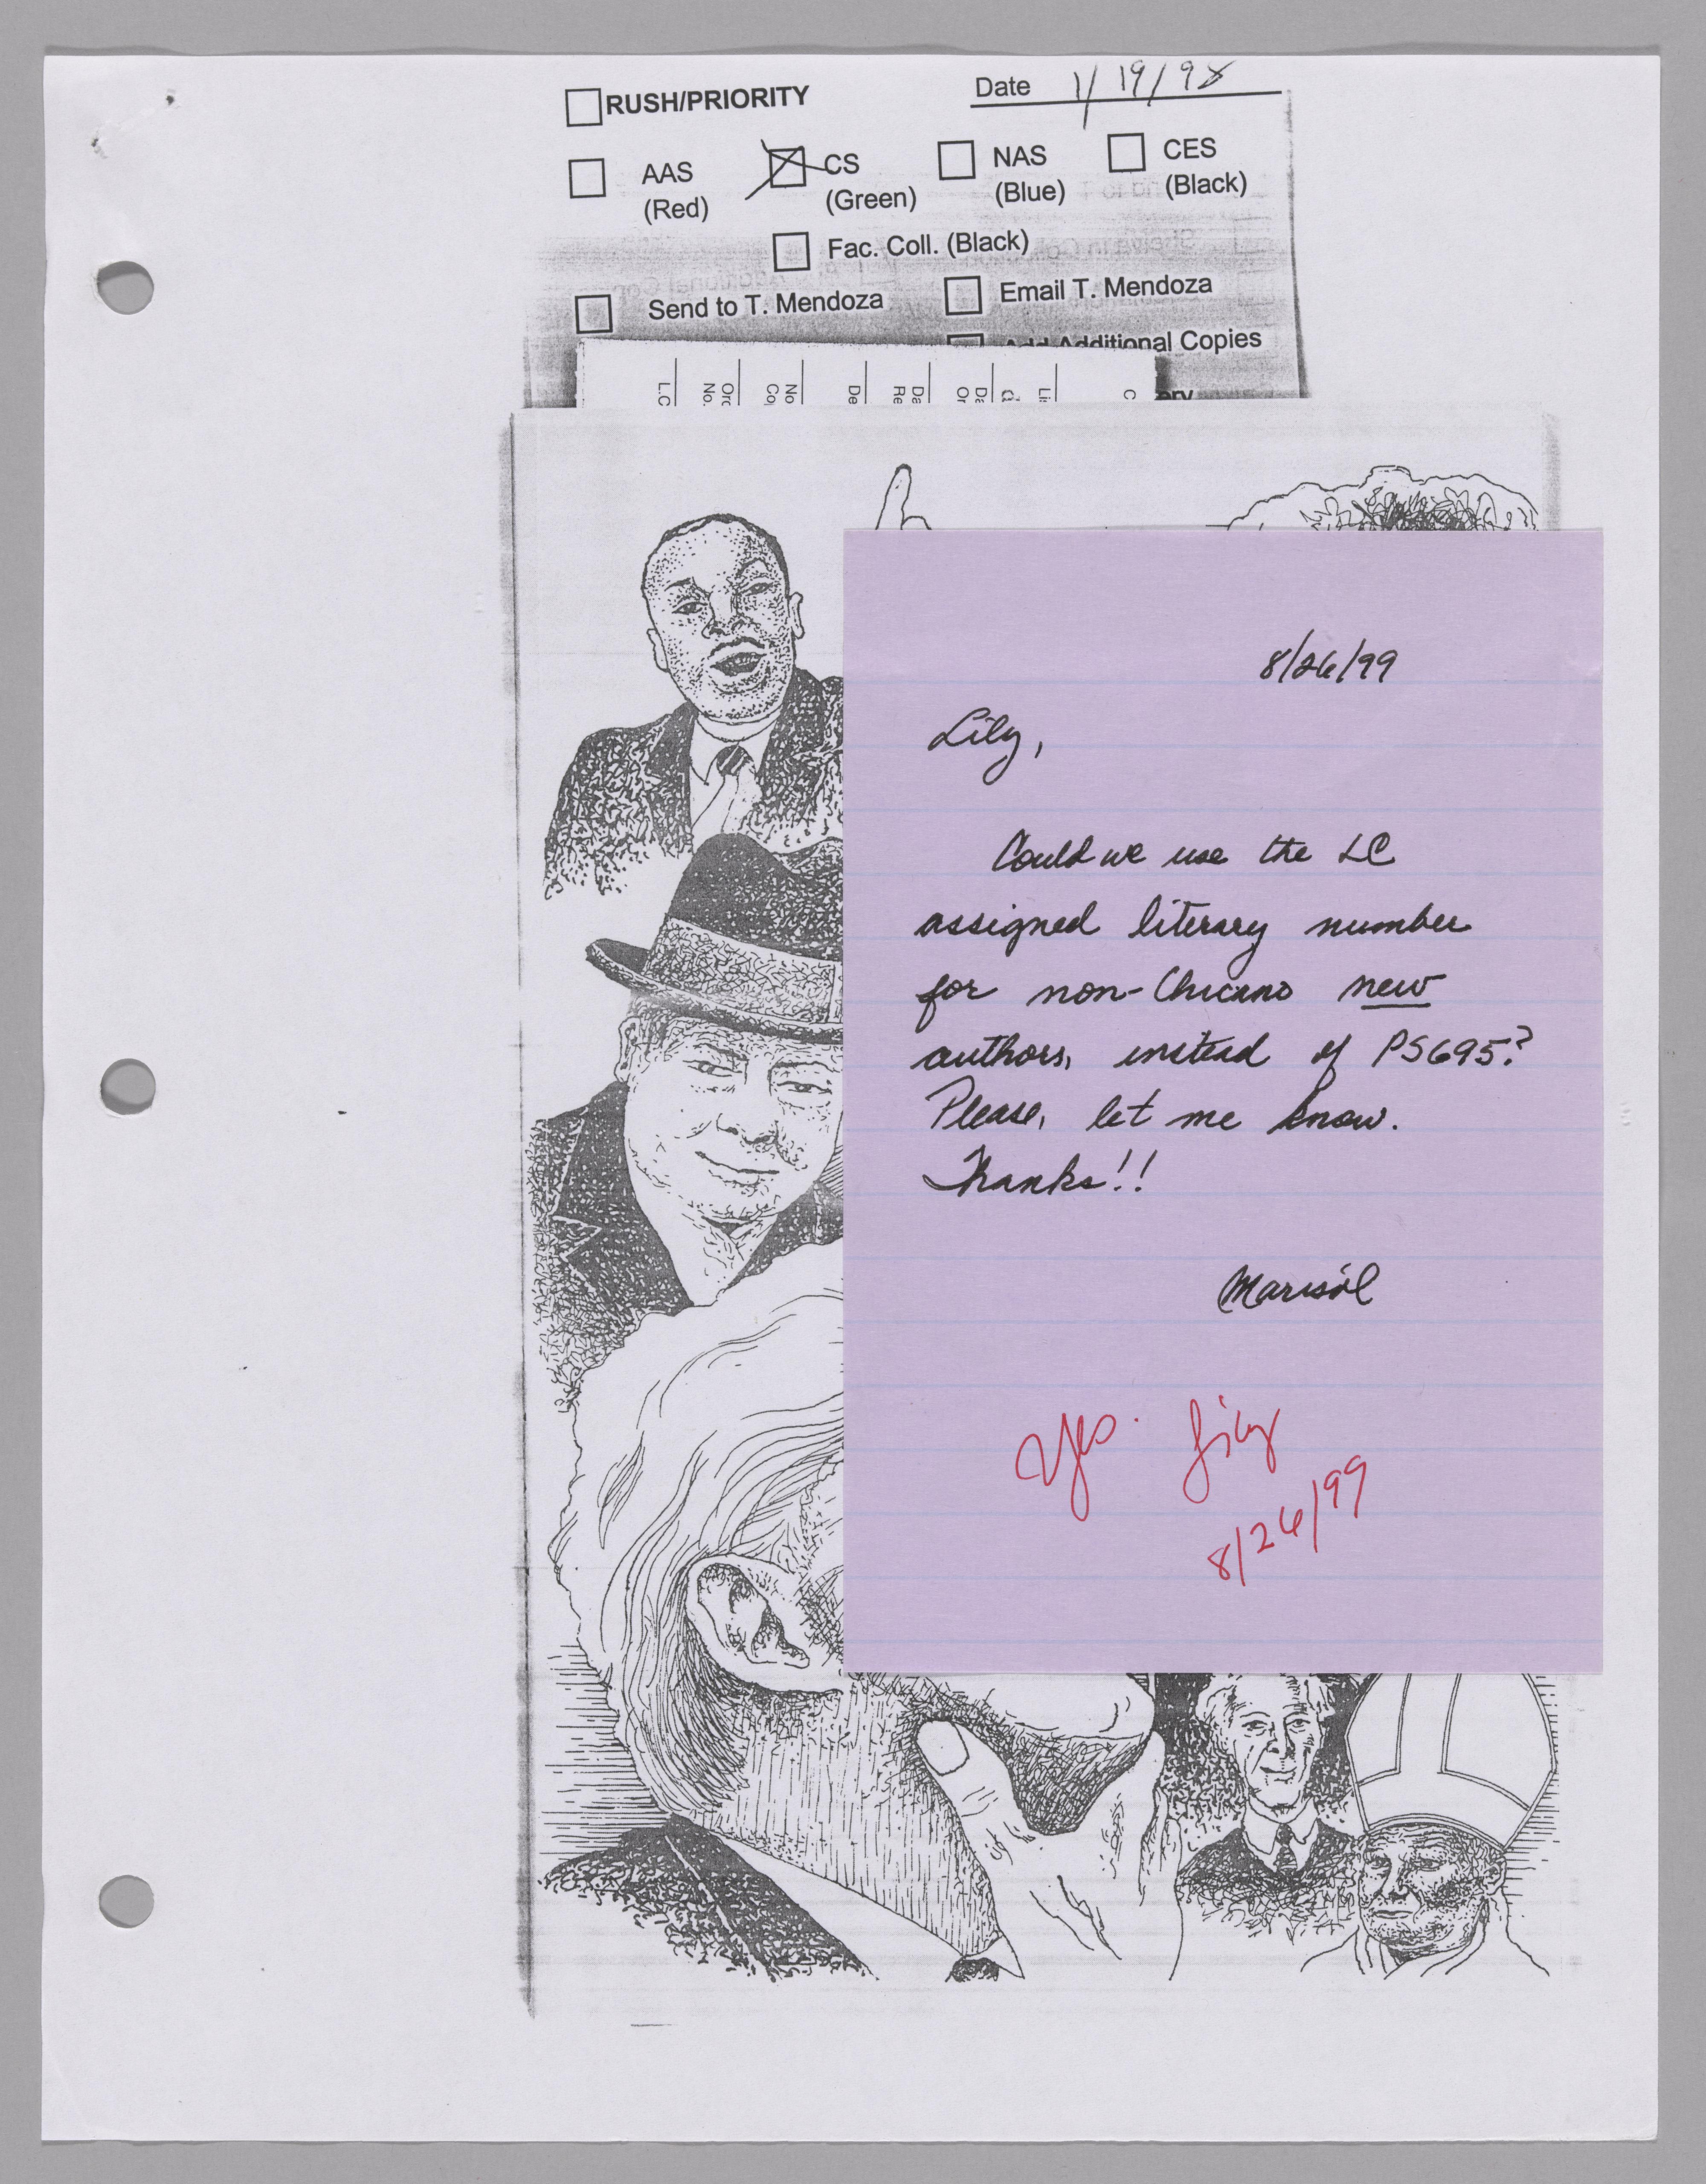 RUSH/PRIORITY
Date 1/19/98
AAS
(Red)
CS
(Green)
NAS
(Blue)
CES
(Black)
Fac. Coll. (Black)
Send to T. Mendoza
Email T. Mendoza
Add Additional Copies
L.C
No.
Orc
Co
No
De
Re
Da
Or
Da
Li
C
ery
8/26/99
Lily,
Could we use the LC
assigned literary number
for non-Chicano new
authors, instead of PS695?
Please, let me know.
Thanks!!
Marisol
Yes. Lily
8/26/99